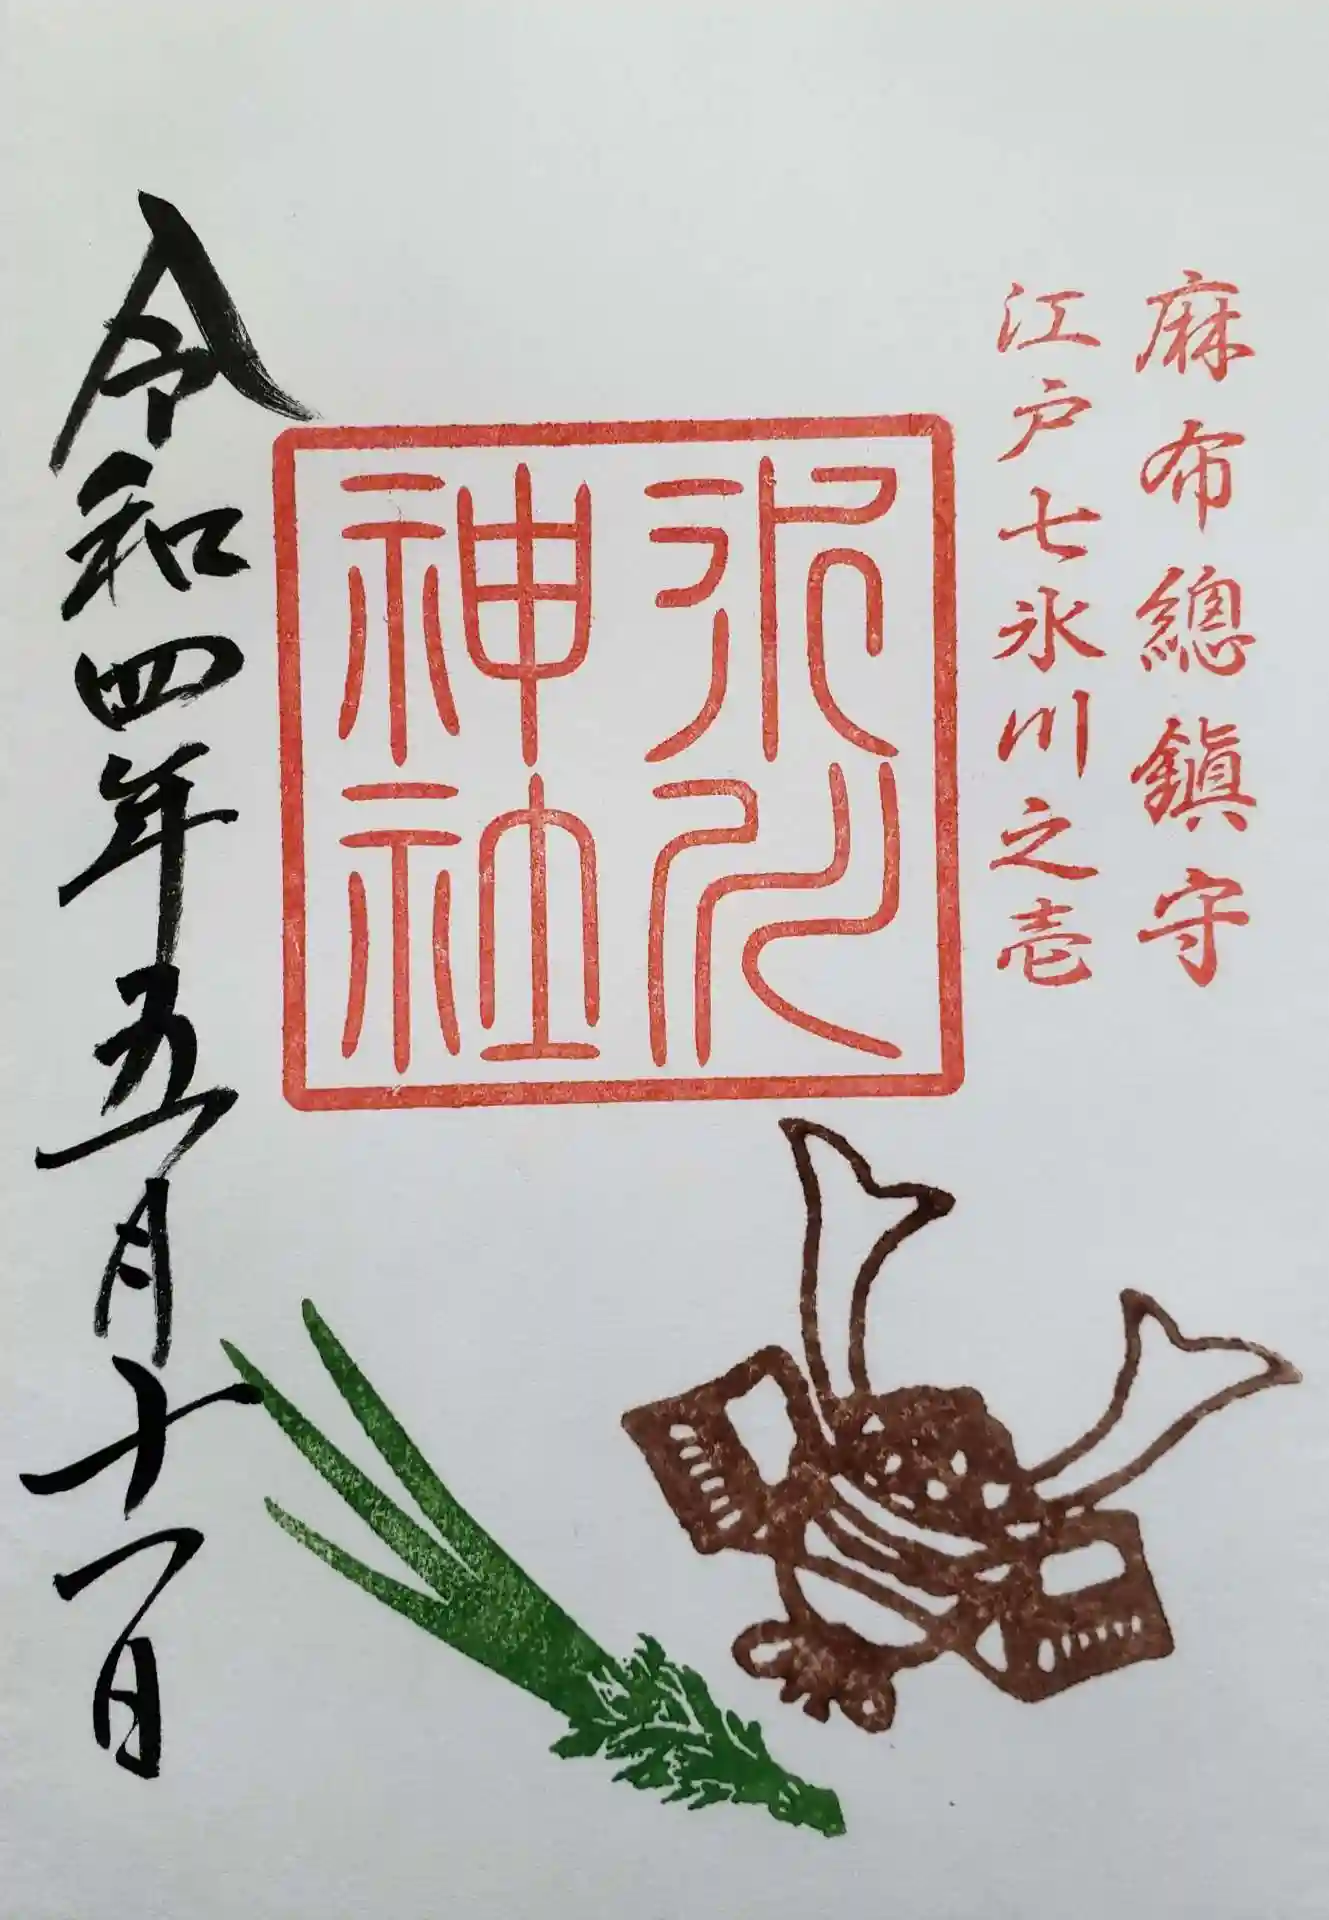 麻布總鎮守
江戸七氷川之壱
氷川
神社
令和四年五月十一日